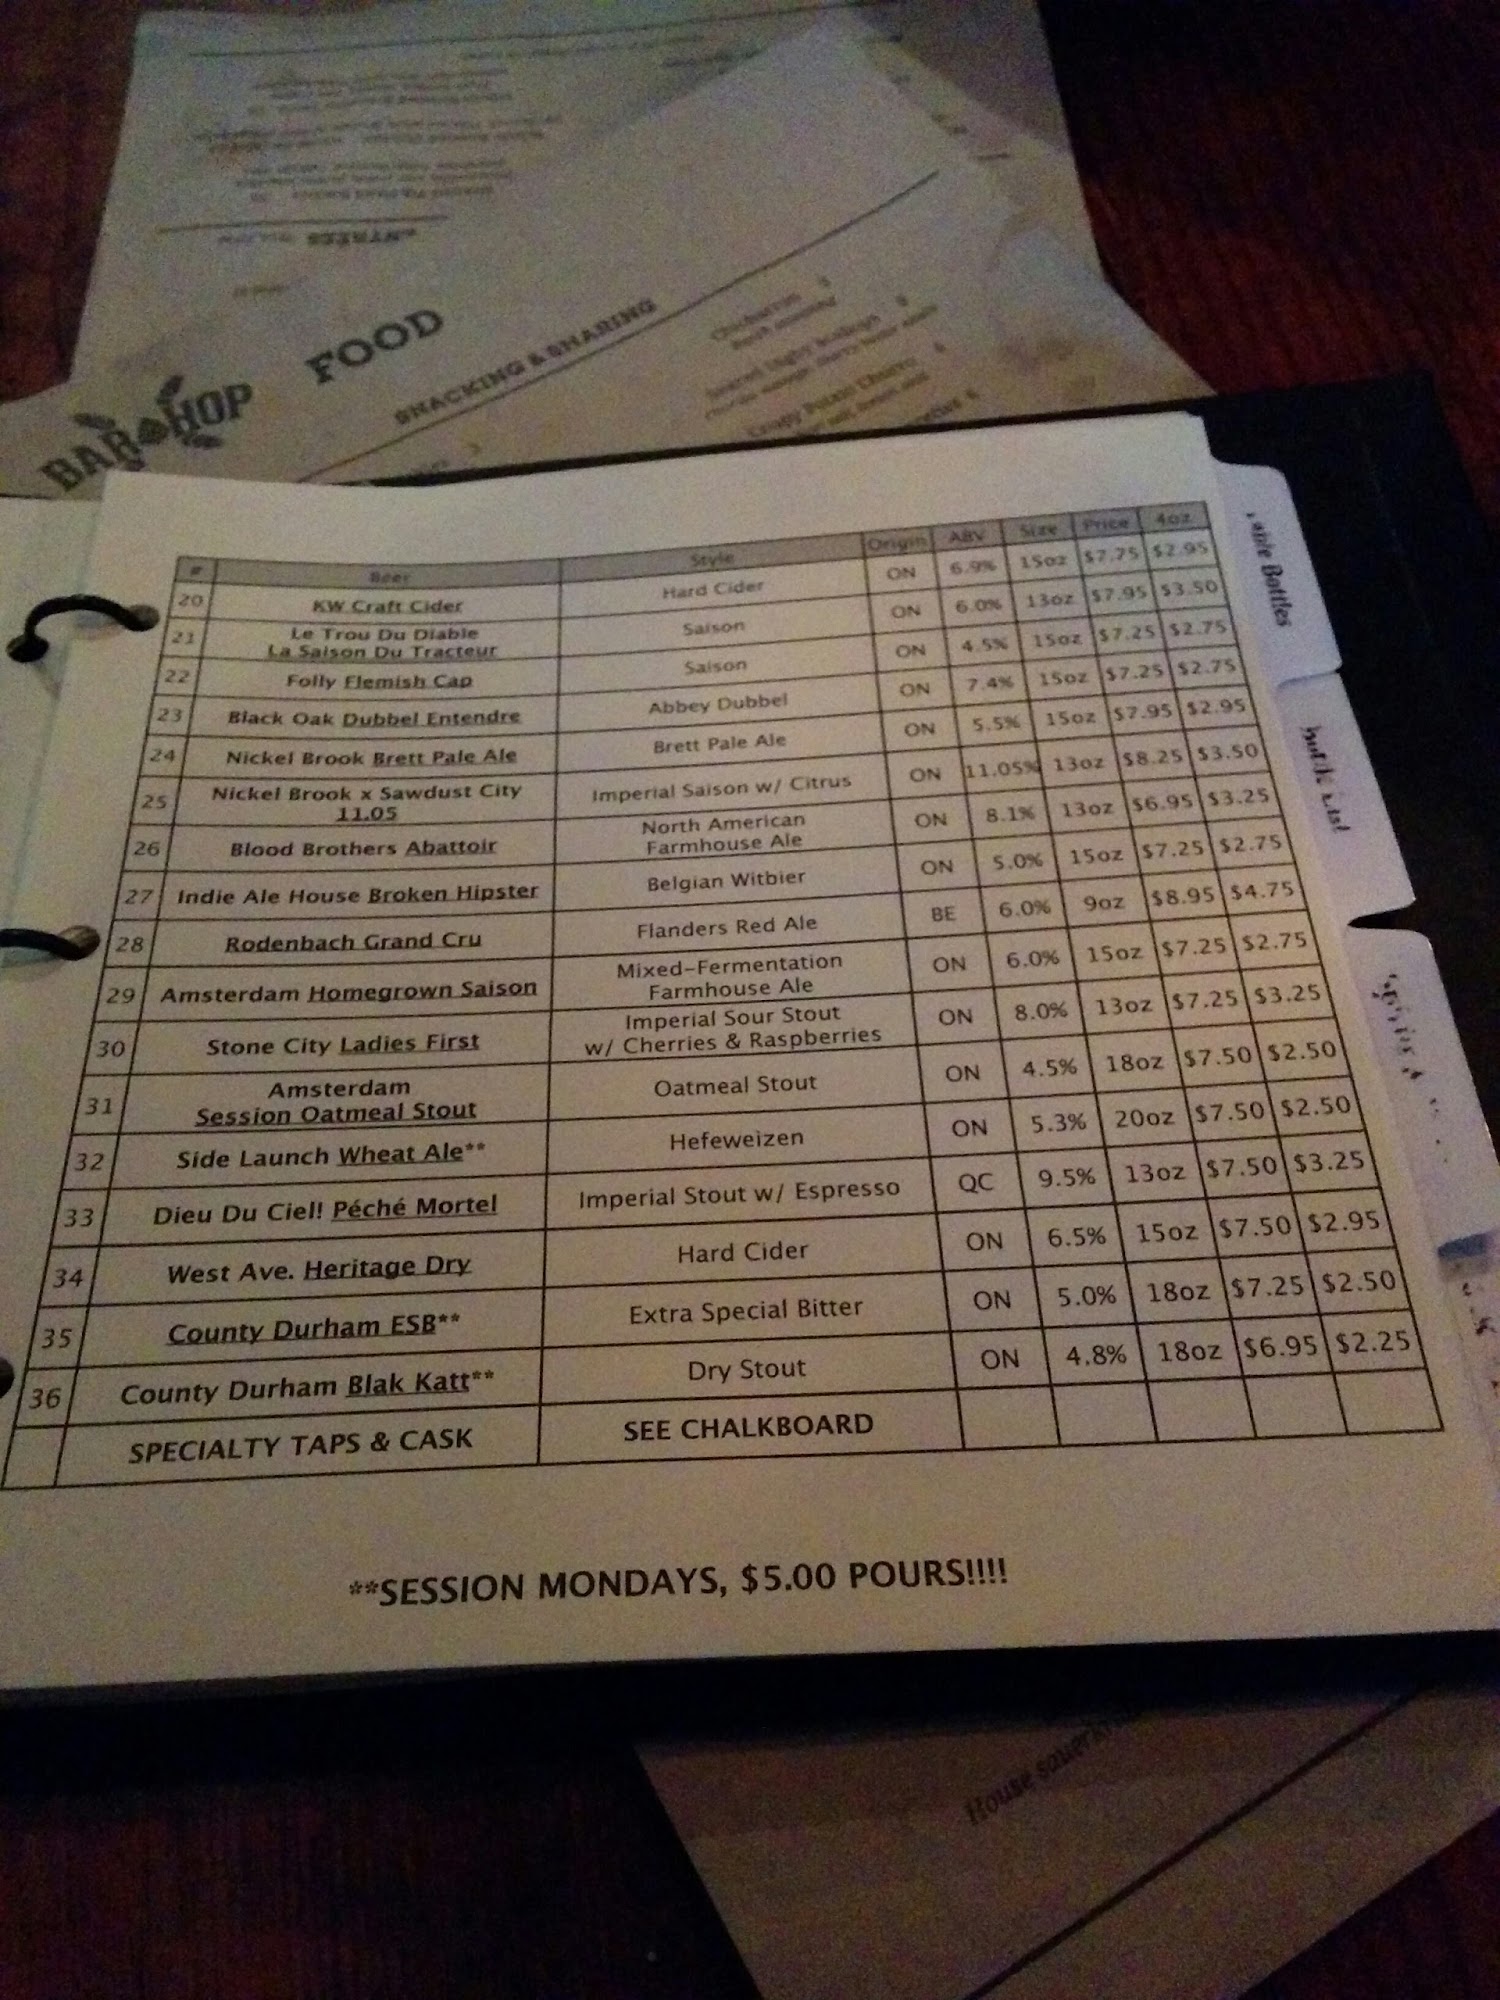 BAR HOP FOOD
SNACKING & SHARING
# Beer Style Origin ABV Size Price 4oz
20 KW Craft Cider Hard Cider ON 6.9% 15oz $7.75 $2.95
21 Le Trou Du Diable
La Saison Du Tracteur Saison ON 6.0% 13oz $7.95 $3.50
22 Folly Flemish Cap Saison ON 4.5% 15oz $7.25 $2.75
23 Black Oak Dubbel Entendre Abbey Dubbel ON 7.4% 15oz $7.25 $2.75
24 Nickel Brook Brett Pale Ale Brett Pale Ale ON 5.5% 15oz $7.95 $2.95
25 Nickel Brook x Sawdust City
11.05 Imperial Saison w/ Citrus ON 11.05% 13oz $8.25 $3.50
26 Blood Brothers Abattoir North American
Farmhouse Ale ON 8.1% 13oz $6.95 $3.25
27 Indie Ale House Broken Hipster Belgian Witbier ON 5.0% 15oz $7.25 $2.75
28 Rodenbach Grand Cru Flanders Red Ale BE 6.0% 9oz $8.95 $4.75
29 Amsterdam Homegrown Saison Mixed-Fermentation
Farmhouse Ale ON 6.0% 15oz $7.25 $2.75
30 Stone City Ladies First Imperial Sour Stout
w/ Cherries & Raspberries ON 8.0% 13oz $7.25 $3.25
31 Amsterdam
Session Oatmeal Stout Oatmeal Stout ON 4.5% 18oz $7.50 $2.50
32 Side Launch Wheat Ale** Hefeweizen ON 5.3% 20oz $7.50 $2.50
33 Dieu Du Ciel! Péché Mortel Imperial Stout w/ Espresso QC 9.5% 13oz $7.50 $3.25
34 West Ave. Heritage Dry Hard Cider ON 6.5% 15oz $7.50 $2.95
35 County Durham ESB** Extra Special Bitter ON 5.0% 18oz $7.25 $2.50
36 County Durham Blak Katt** Dry Stout ON 4.8% 18oz $6.95 $2.25
SPECIALTY TAPS & CASK SEE CHALKBOARD
**SESSION MONDAYS, $5.00 POURS!!!!
Bottles
House